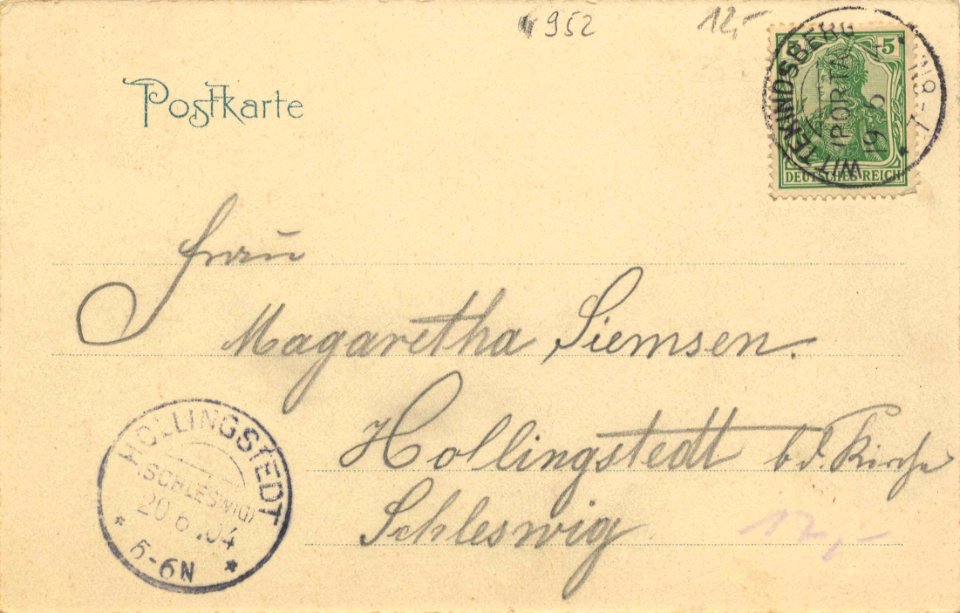 952
12,-
Postkarte
5
DEUTSCHES REICH
WITTEKINDSBERG
(PORTA)
19 6
Frau
Magaretha Siemsen.
Hollingstedt b. d. Kirche
Schleswig
HOLLINGSTEDT
(SCHLESWIG)
20 6.04
* 5-6N *